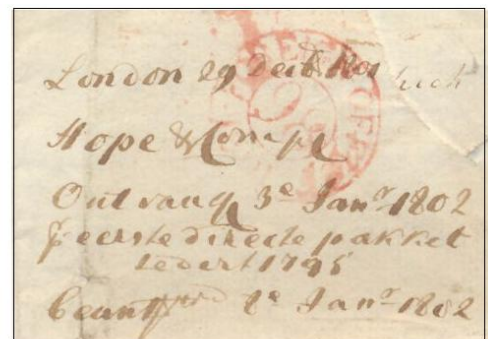 London 29 Decb 1801
Hope & Compe
Ontvangn 3e Janry 1802
eerste directe pakket
sedert 1795
beantwd 8e Janry 1802